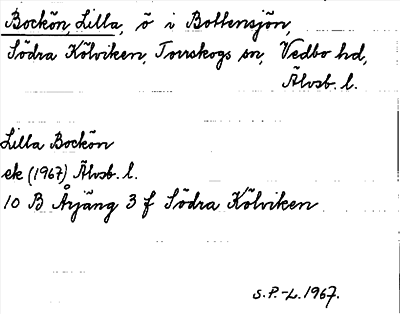 Bockön, Lilla, ö i Bottensjön,
Södra Kölviken, Torrskogs sn, Vedbo hd,
Älvsb. l.
Lilla Bockön
ek (1967) Älvsb. l.
10 B Årjäng 3 f Södra Kölviken
S.P.-L. 1967.